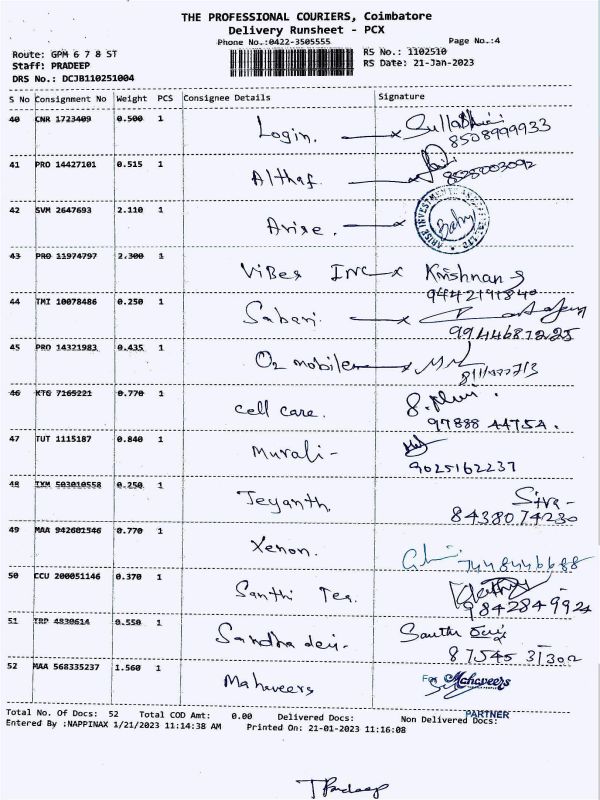 THE PROFESSIONAL COURIERS, Coimbatore
Delivery Runsheet - PCX
Phone No.:0422-3505555 Page No.:4
Route: GPM 6 7 8 ST RS No.: 1102510
Staff: PRADEEP RS Date: 21-Jan-2023
DRS No.: DCJB110251004
S No Consignment No Weight PCS Consignee Details Signature
40 CNR 1723409 0.500 1 Login.
8508999933
41 PRO 14427101 0.515 1 Althaf.
42 SVM 2647693 2.110 1 Arise.
43 PRO 11974797 2.300 1 Vibes Inc Krishnan S
9442191840
44 TMI 10078486 0.250 1 Sabari.
9944687225
45 PRO 14321983 0.435 1 O2 mobile
46 KTG 7165221 0.770 1 cell care.
97888 44754.
47 TUT 1115187 0.840 1 Murali-
9025162237
48 TXM 503010558 0.250 1 Jeyanth Siva-
8438074230
49 MAA 942601546 0.770 1 Xenon.
7448446688
50 CCU 200051146 0.370 1 Santhi Tea.
9842849924
51 TRP 4830614 0.550 1 Sandha devi-
87545 31302
52 MAA 568335237 1.560 1 Mahaveers For Mahaveers
PARTNER
Total No. Of Docs: 52 Total COD Amt: 0.00 Delivered Docs: Non Delivered Docs:
Entered By :NAPPINAX 1/21/2023 11:14:38 AM Printed On: 21-01-2023 11:16:08
T Pradeep